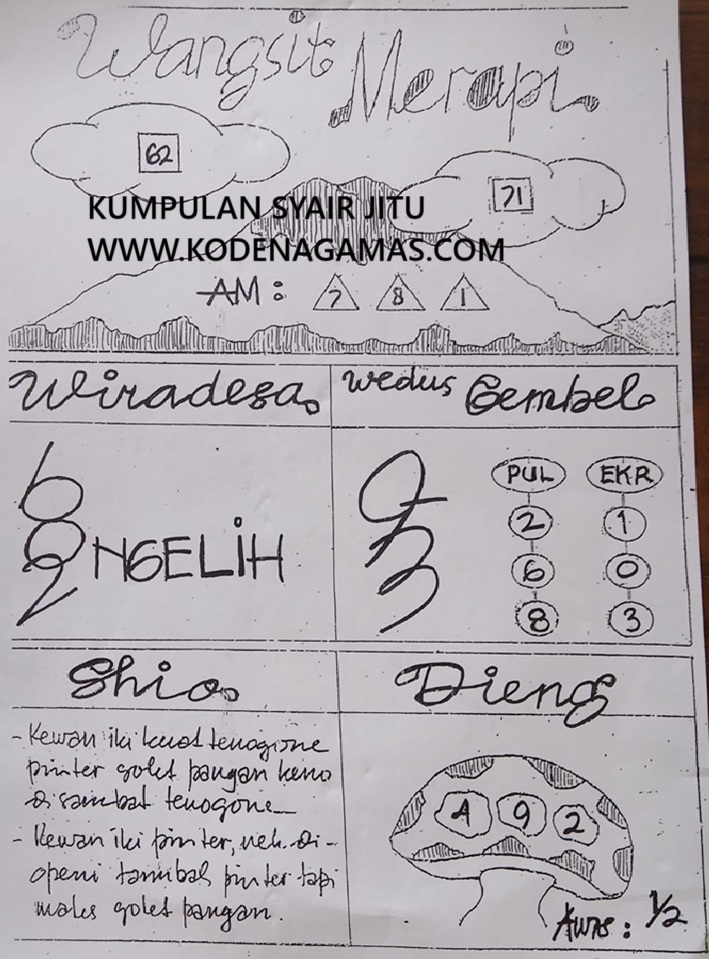 Wangsit
Merapi
62
71
KUMPULAN SYAIR JITU
WWW.KODENAGAMAS.COM
AM : 7 8 1
Wiradesa
Wedus Gembel
6
8 NGELIH
2
PUL EKR
2 1
6 0
8 3
Shio
Dieng
- Kewan iki kuat tenogone
pinter golet pangan keno
di sambat tenogone
- Kewan iki pinter, nek di-
openi tambah pinter tapi
males golet pangan.
4 9 2
Awas : 1/2